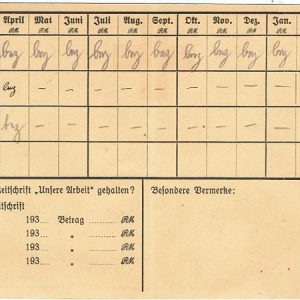 April Mai Juni Juli Aug. Sept. Okt. Nov. Dez. Jan.
RM RM RM RM RM RM RM RM RM RM
bez bez bez bez bez bez bez bez bez bez
bez — — — — — — — — —
bez — — — — — — — — —
eitschrift „Unsere Arbeit“ gehalten? Besondere Vermerke:
itschrift
193.... Betrag ........ RM
193.... „ ........ RM
193.... „ ........ RM
193.... „ ........ RM